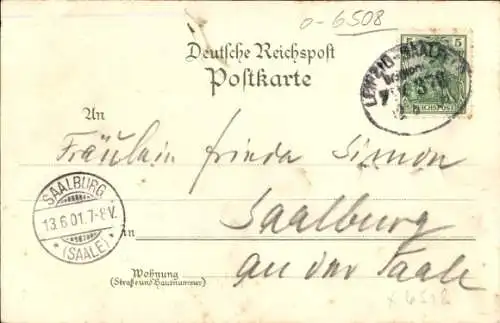 o-6508
Deutsche Reichspost
Postkarte
5 5
REICHSPOST
LEIPZIG-SAALF
An
Fräulein Frieda Simon
SAALBURG
13.6.01.7-8V.
* (SAALE) *
Saalburg
in
an der Saale
Wohnung
(Straße und Hausnummer)